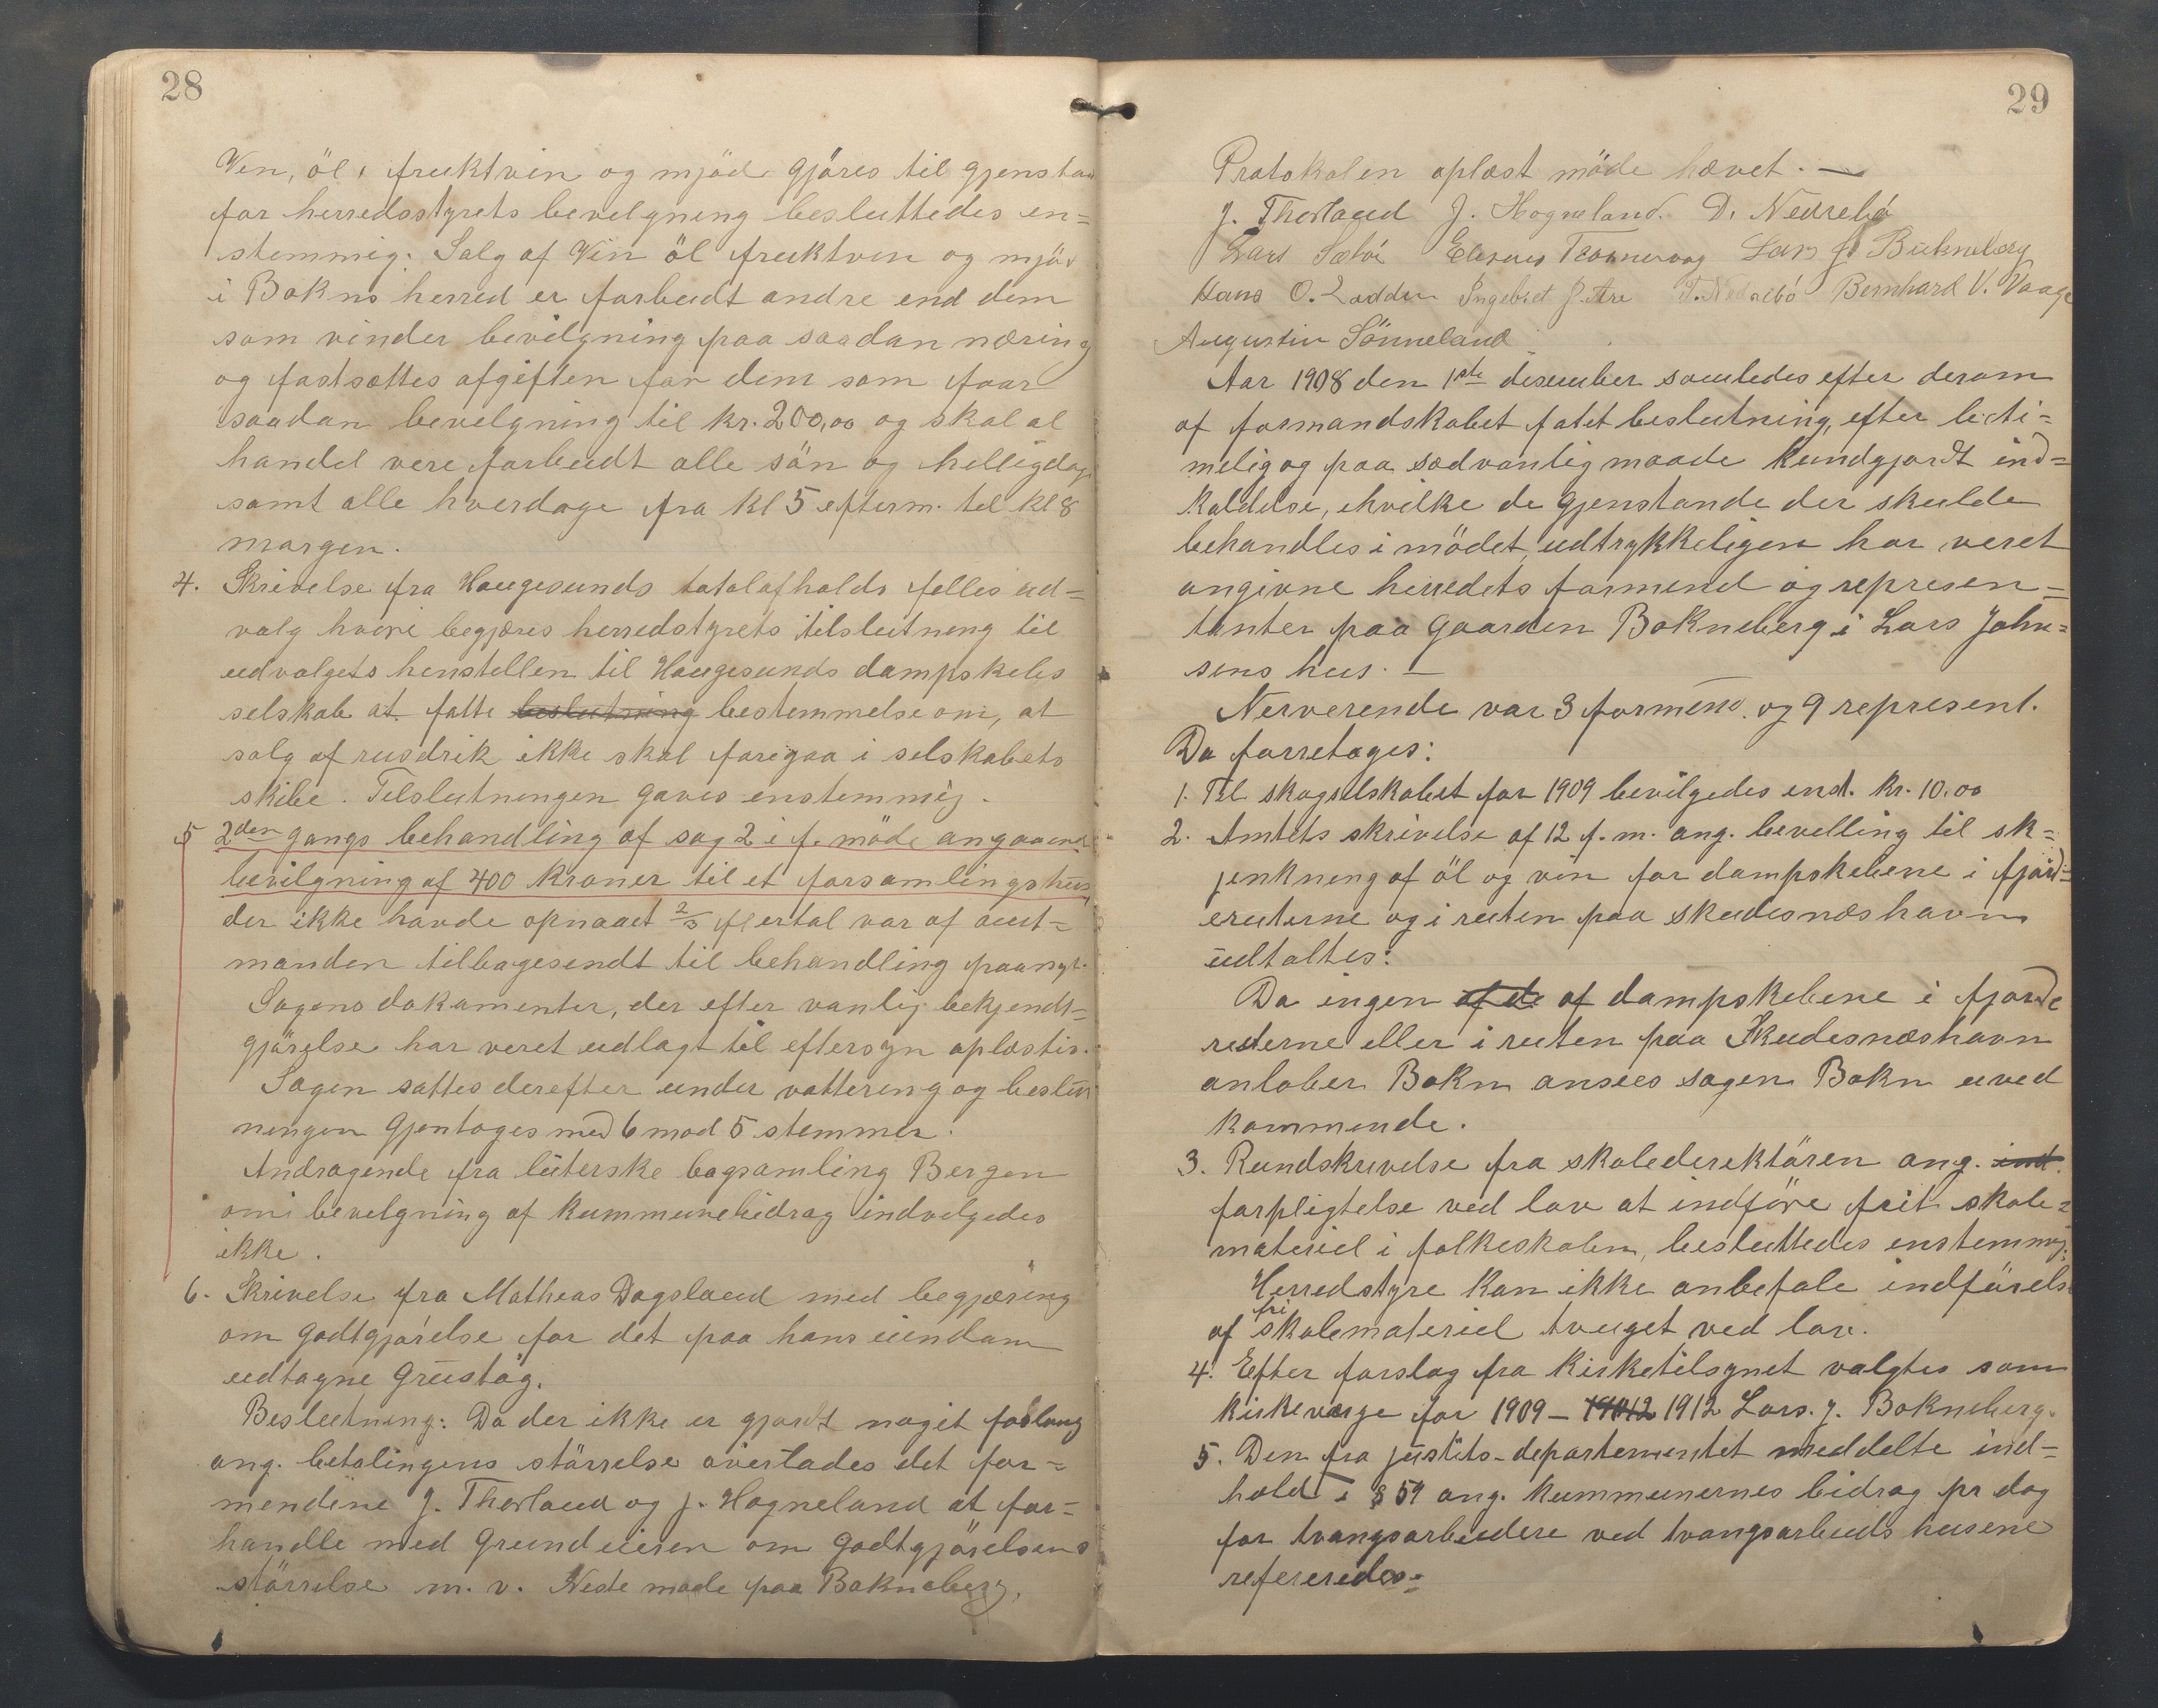 28
Vin, öl, fruktvin og mjöd gjöres til gjenstan
for herredsstyrets bevilgning besluttedes en=
stemmig: Salg af Vin öl fruktvin og mjöd
i Bokns herred er forbudt andre end dem
som vinder bevilgning paa saadan næring
og fastsættes afgiften for dem som faar
saadan bevilgning til kr. 200,00 og skal al
handel være forbudt alle sön og helligdage
samt alle hverdage fra kl 5 efterm. til kl 8
morgen.
4. Skrivelse fra Haugesunds totalafholds felles ud=
valg hvori begjæres herredstyrets tilslutning til
udvalgets henstellen til Haugesunds dampskibs
selskab at fatte beslutning bestemmelse om, at
salg af rusdrik ikke skal foregaa i selskabets
skibe. Tilslutningen gaves enstemmig.
5 2den gangs behandling af sag 2 i f. möde angaaende
bevilgning af 400 kroner til et forsamlingshus
der ikke havde opnaaet 2/3 flertal var af amt=
manden tilbagesendt til behandling paanyt.
Sagens dokumenter, der efter vanlig bekjendt=
gjörelse har veret udlagt til eftersyn oplæstes.
Sagen sattes derefter under vottering og beslut
ningen gjentoges med 6 mod 5 stemmer.
Andragende fra luterske bogsamling Bergen
om bevelgning af kummunebidrag indvelgedes
ikke.
6. Skrivelse fra Matheas Dagsland med begjæring
om godtgjörelse for det paa hans eiendom
udtagne grustag.
Beslutning: Da der ikke er gjordt noget forlang
ang. betalingens störrelse överlades det for=
mendene J. Thorland og J. Hogneland at for=
handle med grundeieren om godtgjörelsens
störrelse m. v. Neste möde paa Bokneberg.
29
Protokolen oplæst möde hævet. —
J. Thorland J. Hogneland. D. Nedrebö
Lars Sæbö Elias Trosnavaag Lars J. Bukneberg
Hans O. Lodden Ingebret J. Are T. Nedrebö Bernhard V. Vaage
Augustin Sönneland
Aar 1908 den 1ste desember samledes efter derom
af formandskabet fatet beslutning, efter beti=
melig og paa sædvanlig maade kundgjordt ind=
kaldelse, ehvilke de gjenstande der skulde
behandles i mödet, udtrykkeligen har veret
angivne herredets formend og represen=
tanter paa gaarden Bokneberg i Lars John=
sens hus. —
Nerverende var 3 formend. og 9 represent.
Da forretoges:
1. Til skogselskabet for 1909 bevilgedes enst. kr. 10.00
2. Amtets skrivelse af 12 f. m. ang. bevelling til sk=
jenkning af öl og vin for dampskebene i fjord=
eruterne og i ruten paa skudesnæshavn
udtaltes:
Da ingen af de af dampskebene i fjorde
ruterne eller i ruten paa Skudesnæshavn
anlober Bokn ansees sagen Bokn uved
kommende.
3. Rundskrivelse fra skolederektören ang. ind.
forpligtelse ved lov at indföre frit skole=
materiel i folkeskolen, besluttedes enstemmig.
Herredstyre kan ikke anbefale indförelse
af fri skolemateriel tvuget ved lov.
4. Efter forslag fra kirketilsynet valgtes som
kirkeværge for 1909 – 19012 1912 Lars. J. Bokneberg.
5. Den fra justits-departementet meddelte ind=
hold i § 59 ang. kummunernes bidrag pr dag
for tvangsarbeidere ved tvangsarbeids husene
refereredes.